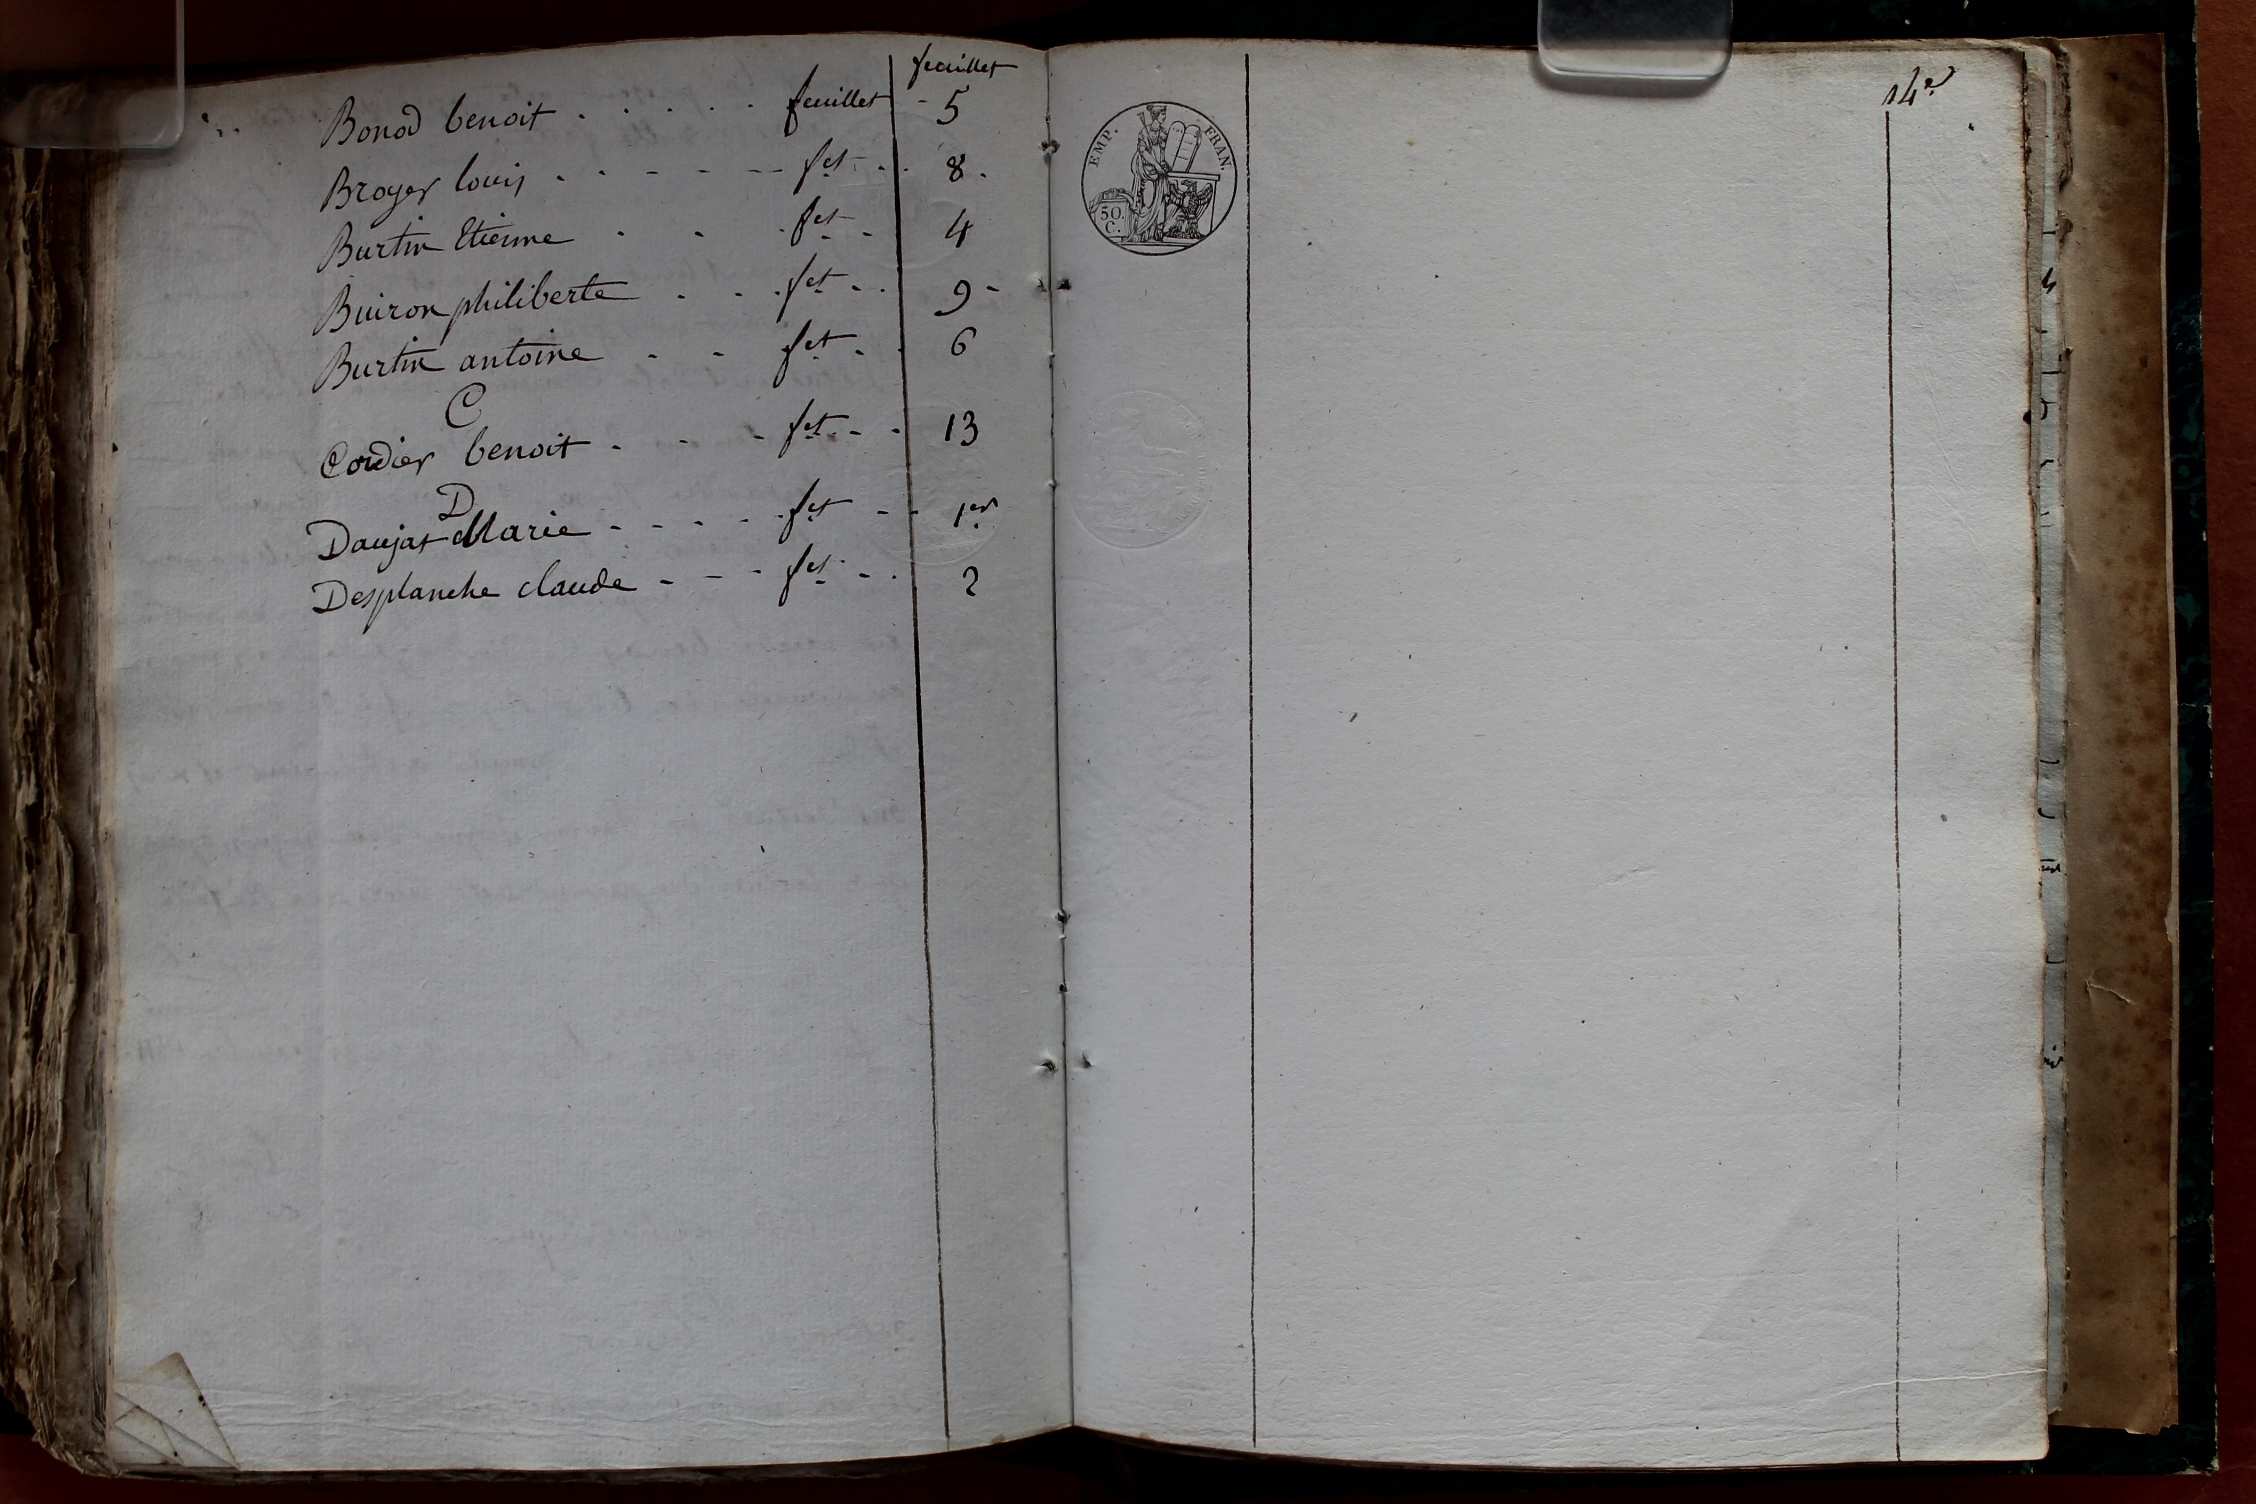 feuillet
Bonod benoit . . . . . feuillet - 5
Broyer louis . . - - - - - fet - . . 8 .
Burtin Etienne . . . fet - 4
Buiron philiberte . . . fet - . 9 -
Burtin antoine . - fet - . 6
C
Cordier benoit . - - - fet - - - 13
D
Daujat Marie - - - - . fet - - 1er
Desplanche claude - - - fet - . 2
14e
EMP. FRAN.
50.
C.